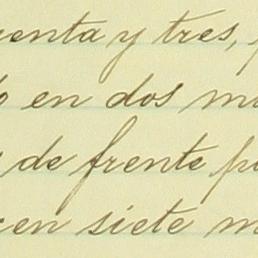 enta y tres,
en dos m
de frente p
en siete m